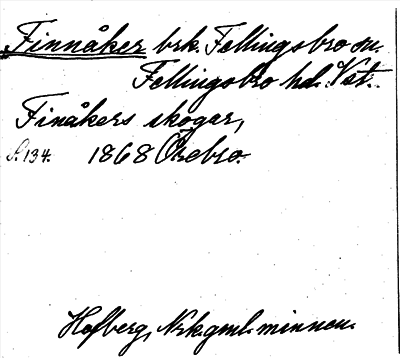 Finnåker brk. Fellingsbro sn.
Fellingsbro hd. Vst.
Finåkers skogar,
S. 134. 1868 Örebro.
Hofberg, Nrk. gml. minnen.